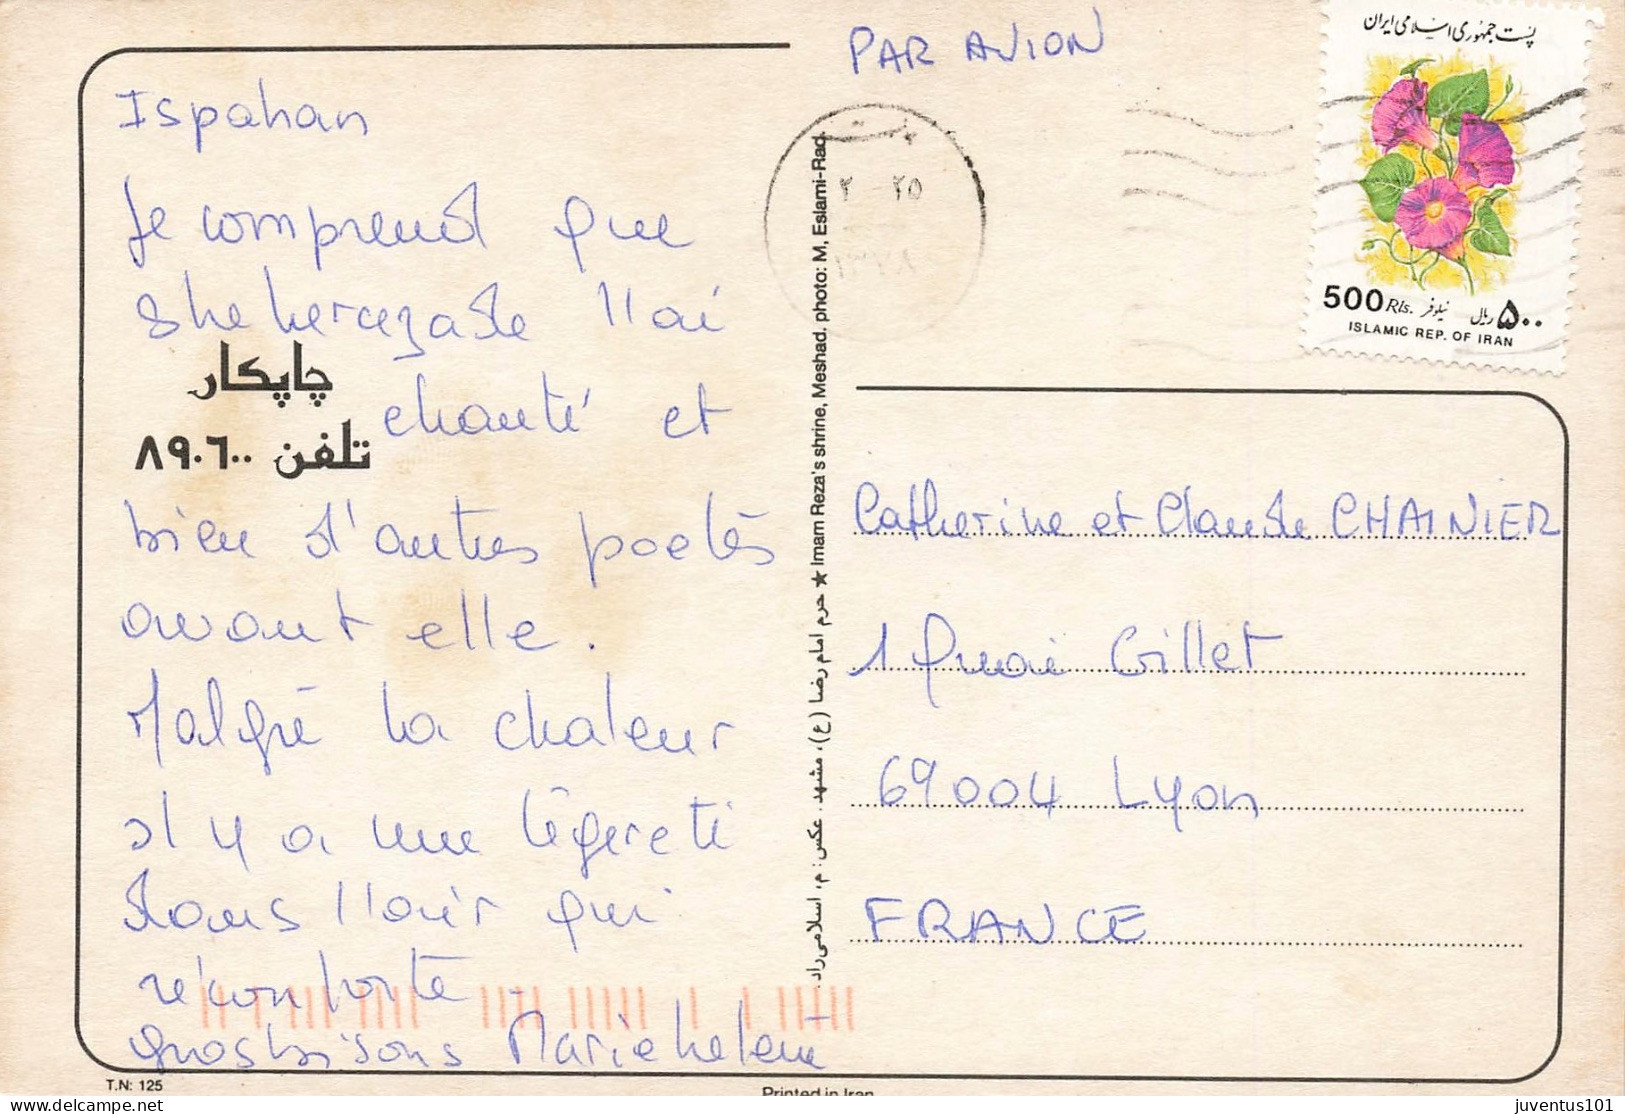 Ispahan
Je comprend que
sheherazade l'ai
chanté et
bien d'autres poetes
avant elle.
Malgré la chaleur
il y a une légereté
dans l'air qui
réconforte.
grosbisons Mariehelene
چاپکار
تلفن ۸۹۰۶۰۰
T.N: 125
Printed in Iran
حرم امام رضا (ع)، مشهد. عکس: م، اسلامی‌راد. ★ Imam Reza's shrine, Meshad. photo: M, Eslami-Rad.
PAR AVION
پست
۲ - ۲۵
پست جمهوری اسلامی ایران
500 Rls. نیلوفر ۵۰۰ ریال
ISLAMIC REP. OF IRAN
Catherine et Claude CHAINIER
1 Quai Gillet
69004 Lyon
FRANCE
juventus101